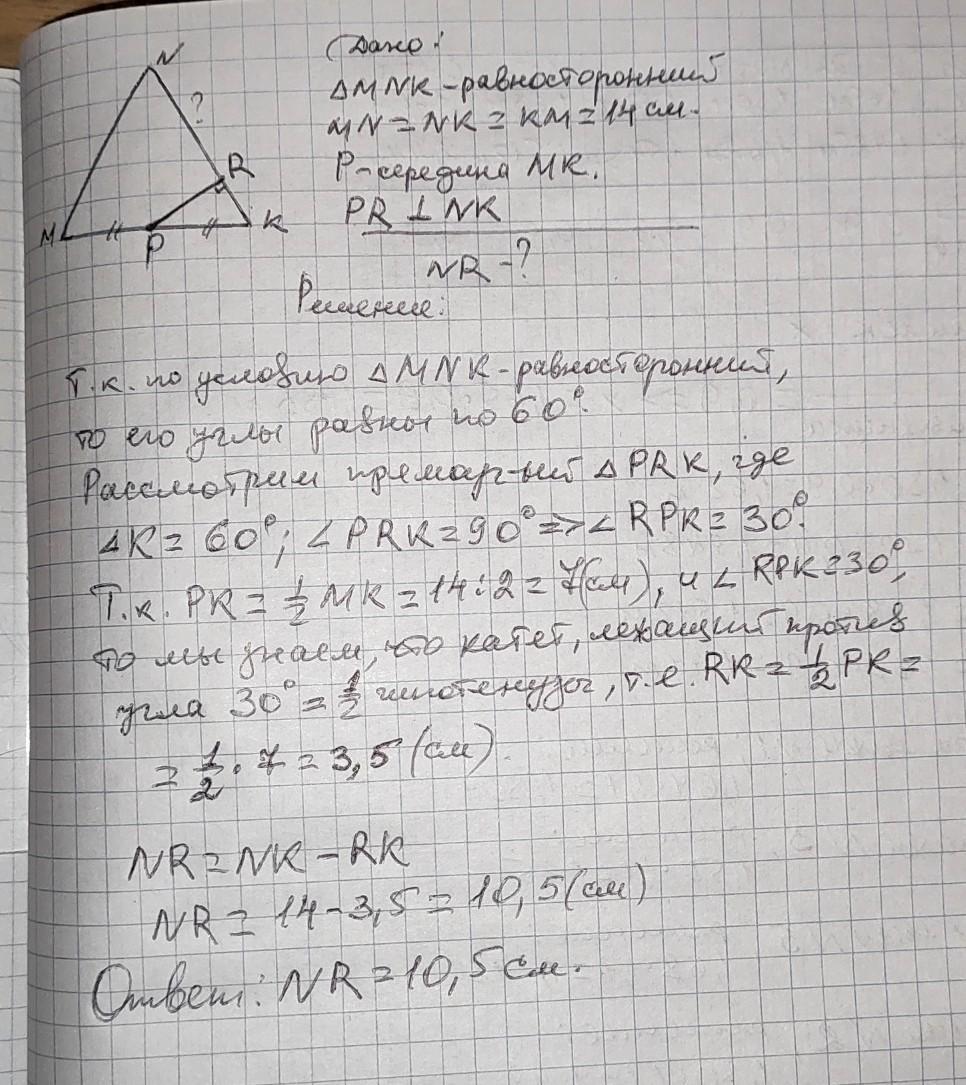 N
?
R
M
P
K
Дано:
△MNK - равносторонний
MN = NK = KM = 14 см.
P - середина MK.
PR ⊥ NK
NR - ?
Решение:
Т.к. по условию △MNK - равносторонний,
то его углы равны по 60°.
Рассмотрим прямоуг-ный △PRK, где
∠K = 60°; ∠PRK = 90° => ∠RPK = 30°.
Т.к. PK = 1/2 MK = 14:2 = 7(см), и ∠RPK = 30°,
то мы знаем, что катет, лежащий против
угла 30° = 1/2 гипотенузы, т.е. RK = 1/2 PK =
= 1/2 · 7 = 3,5 (см).
NR = NK - RK
NR = 14 - 3,5 = 10,5 (см)
Ответ: NR = 10,5 см.